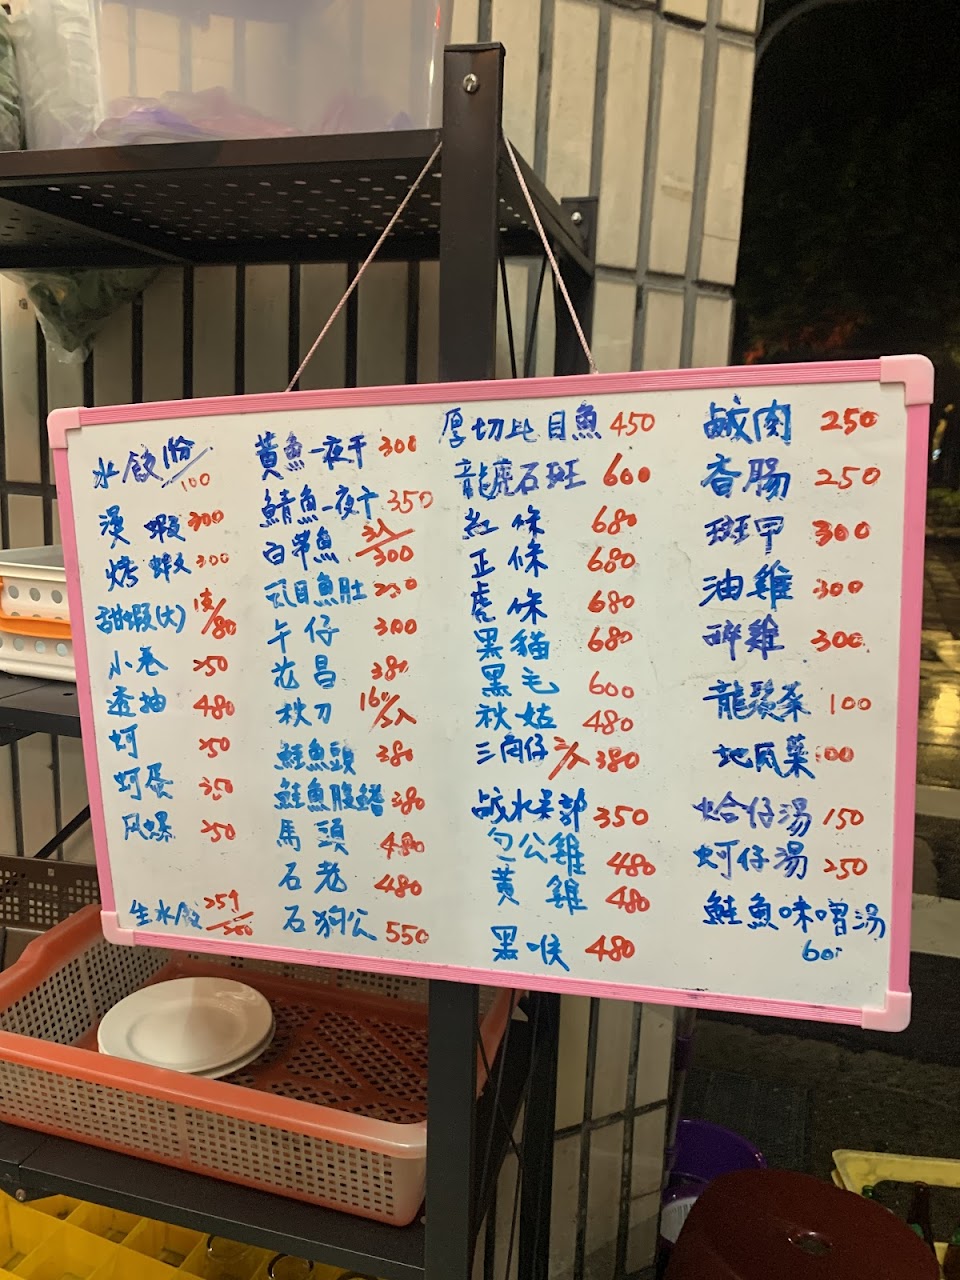 水餃1份/100
燙蝦 300
烤蝦 300
甜蝦(大) 1隻/80
小卷 250
透抽 480
蚵 250
蚵蛋 250
風螺 250
生水餃 25个/300
黃魚一夜干 300
鯖魚一夜干 350
白帶魚 3入/300
虱目魚肚 200
午仔 300
花昌 380
秋刀 160/2入
鮭魚頭 380
鮭魚腹鰭 380
馬頭 480
石老 480
石狗公 550
厚切比目魚 450
龍虎石斑 600
紅條 680
正條 680
虎條 680
黑貓 680
黑毛 600
秋姑 480
三角仔 2/入 380
鹹水果郭 350
包公雞 480
黃雞 480
黑喉 480
鹹肉 250
香腸 250
斑甲 300
油雞 300
醉雞 300
龍鬚菜 100
地瓜葉 100
蛤仔湯 150
蚵仔湯 250
鮭魚味噌湯
60